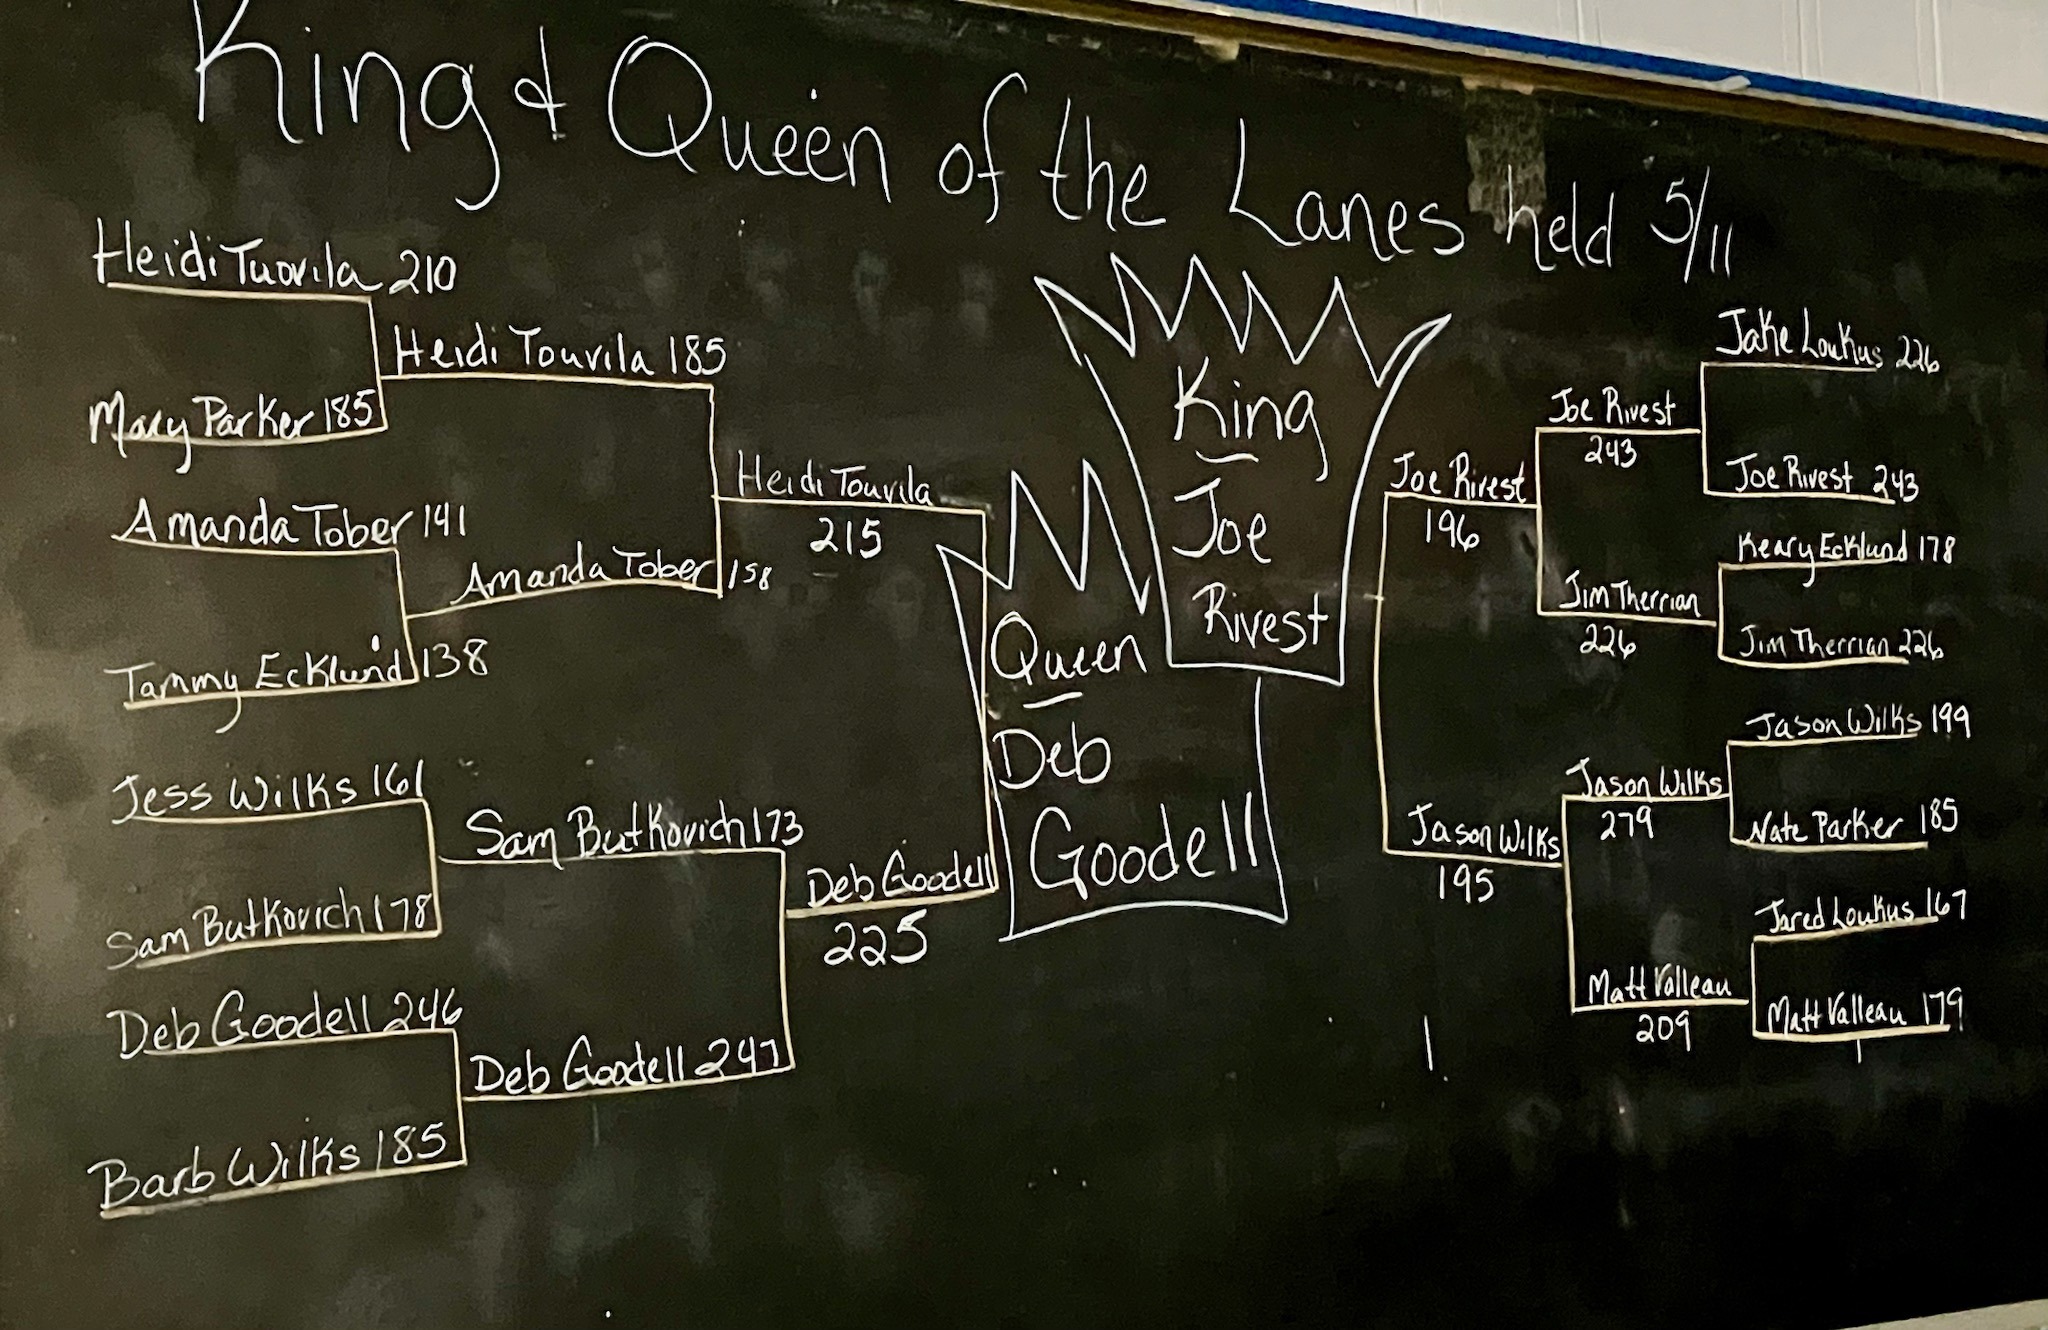 King & Queen of the Lanes held 5/11
Heidi Tuovila 210
Mary Parker 185
Amanda Tober 141
Tammy Ecklund 138
Jess Wilks 161
Sam Butkovich 178
Deb Goodell 246
Barb Wilks 185
Heidi Touvila 185
Amanda Tober 158
Sam Butkovich 173
Deb Goodell 247
Heidi Touvila
215
Deb Goodell
225
Queen
Deb
Goodell
King
Joe
Rivest
Joe Rivest
196
Jason Wilks
195
Joe Rivest
243
Jim Therrian
226
Jason Wilks
279
Matt Valleau
209
Jake Loukus 226
Joe Rivest 243
Keary Ecklund 178
Jim Therrian 226
Jason Wilks 199
Nate Parker 185
Jared Loukus 167
Matt Valleau 179